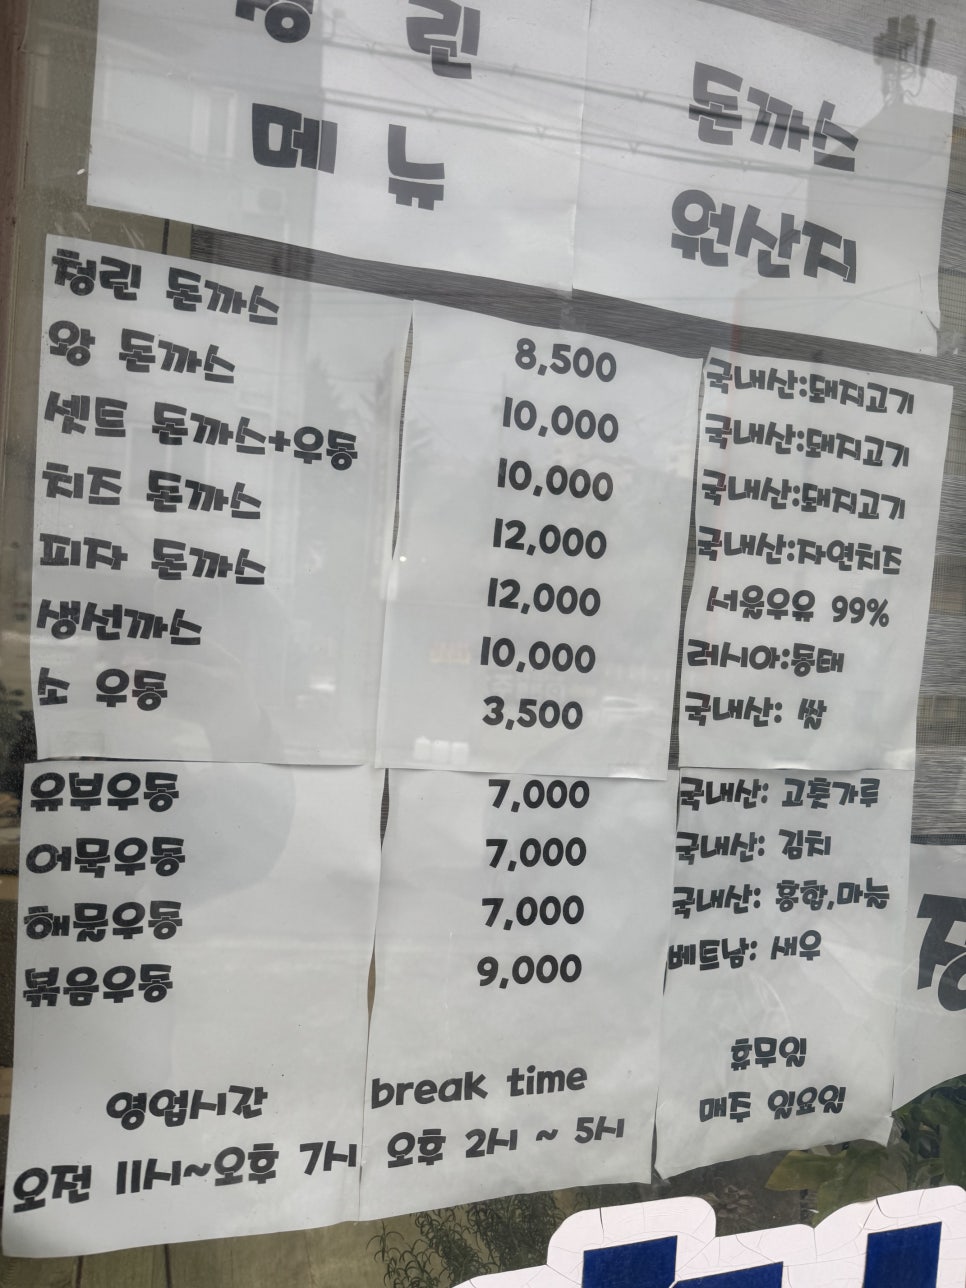 청린
메뉴
돈까스
원산지
청린 돈까스
왕 돈까스
셋트 돈까스+우동
치즈 돈까스
피자 돈까스
생선까스
소 우동
8,500
10,000
10,000
12,000
12,000
10,000
3,500
국내산:돼지고기
국내산:돼지고기
국내산:돼지고기
국내산:자연치즈
서울우유 99%
러시아:동태
국내산: 쌀
유부우동
어묵우동
해물우동
볶음우동
7,000
7,000
7,000
9,000
국내산: 고춧가루
국내산: 김치
국내산: 홍합,마늘
베트남: 새우
영업시간
오전 11시~오후 7시
break time
오후 2시 ~ 5시
휴무일
매주 일요일